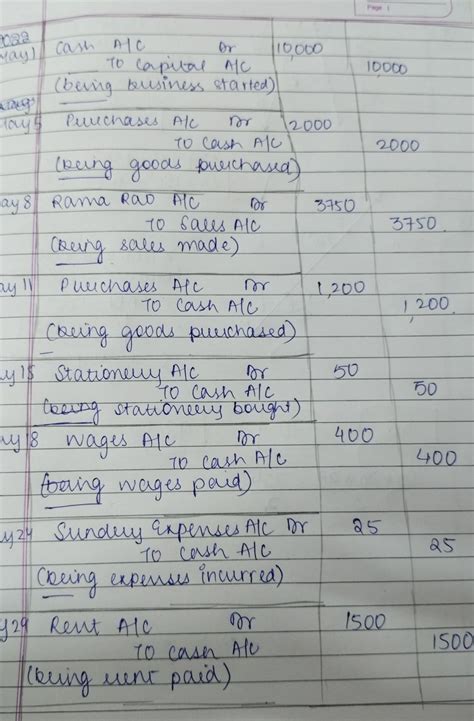 Page 1
2022
May 1 Cash A/C Dr 10,000
To Capital A/C 10,000
(being business started)
May 5 Purchases A/C Dr 2000
To Cash A/C 2000
(being goods purchased)
ay 8 Rama Rao A/C Dr 3750
To Sales A/C 3750
(being sales made)
ay 11 Purchases A/C Dr 1,200
To Cash A/C 1,200
(being goods purchased)
y 15 Stationery A/C Dr 50
To Cash A/C 50
(being stationery bought)
ay 18 Wages A/C Dr 400
To Cash A/C 400
(being wages paid)
y 24 Sundry Expenses A/C Dr 25
To Cash A/C 25
(being expenses incurred)
y 29 Rent A/C Dr 1500
To Cash A/C 1500
(being rent paid)